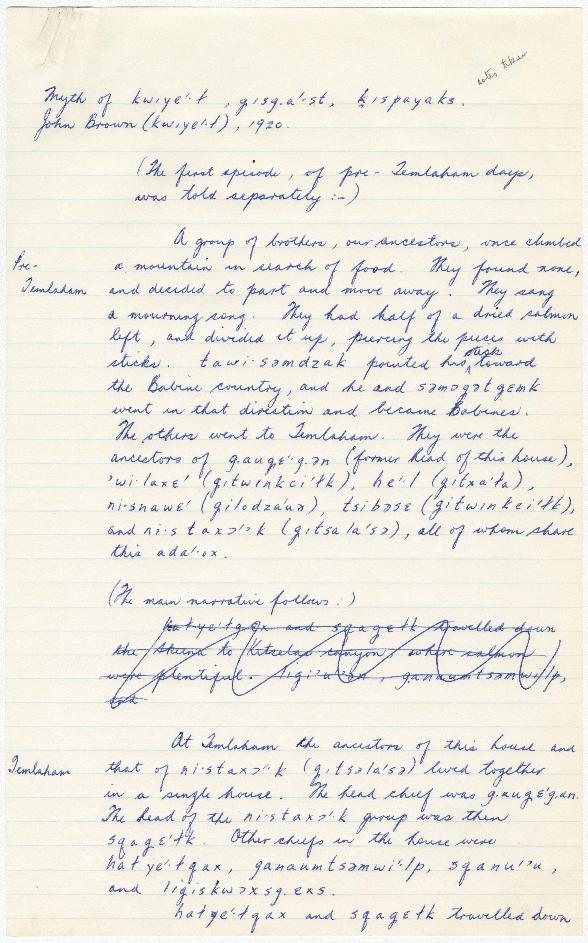 notes taken
Myth of kwiye'·t , gisg.a'·st, ḳispayaks.
John Brown (kwiye'·t), 1920.
(The first episode, of pre-Temlaham days,
was told separately :-)
A group of brothers, our ancestors, once climbed
Pre-
a mountain in search of food. They found none,
Temlaham
and decided to part and move away. They sang
a mourning song. They had half of a dried salmon
left, and divided it up, piercing the pieces with
sticks. tawi·səmdzak pointed his stick toward
the Babine country, and he and səməgət gɛmk
went in that direction and became Babines.
The others went to Temlaham. They were the
ancestors of g.aug.ɛ'·g.ən (former head of this house),
'wi·laxe' (gitwinkci'łk), he'·l (gitxa'ła),
ni·snawɛ' (gilodza'uə), tsibəsɛ (gitwinkci'·łk),
and ni·s taxɔ'·'k (g.itsa la'sə), all of whom share
this ada'·ox.
(The main narrative follows :)
hatye'·tgax and sqagɛtk travelled down
the Skeena to Kitselas canyon, where salmon
were plentiful. , ganaumtsəmwi'·lp,
and
At Temlaham the ancestors of this house and
Temlaham
that of ni·staxɔ'·'k (g.itsəla'sə) lived together
in a single house. The head chief was g.aug.ɛ'g.ən.
The head of the ni·staxɔ'·k group was then
sqagɛ'łk. Other chiefs in the house were
hat'ye'·tqax, ganaumtsəmwi'·lp, sqanu'ɔu,
and ligiskwɔxsg.ɛxs.
hatye'·tqax and sqagɛtk travelled down